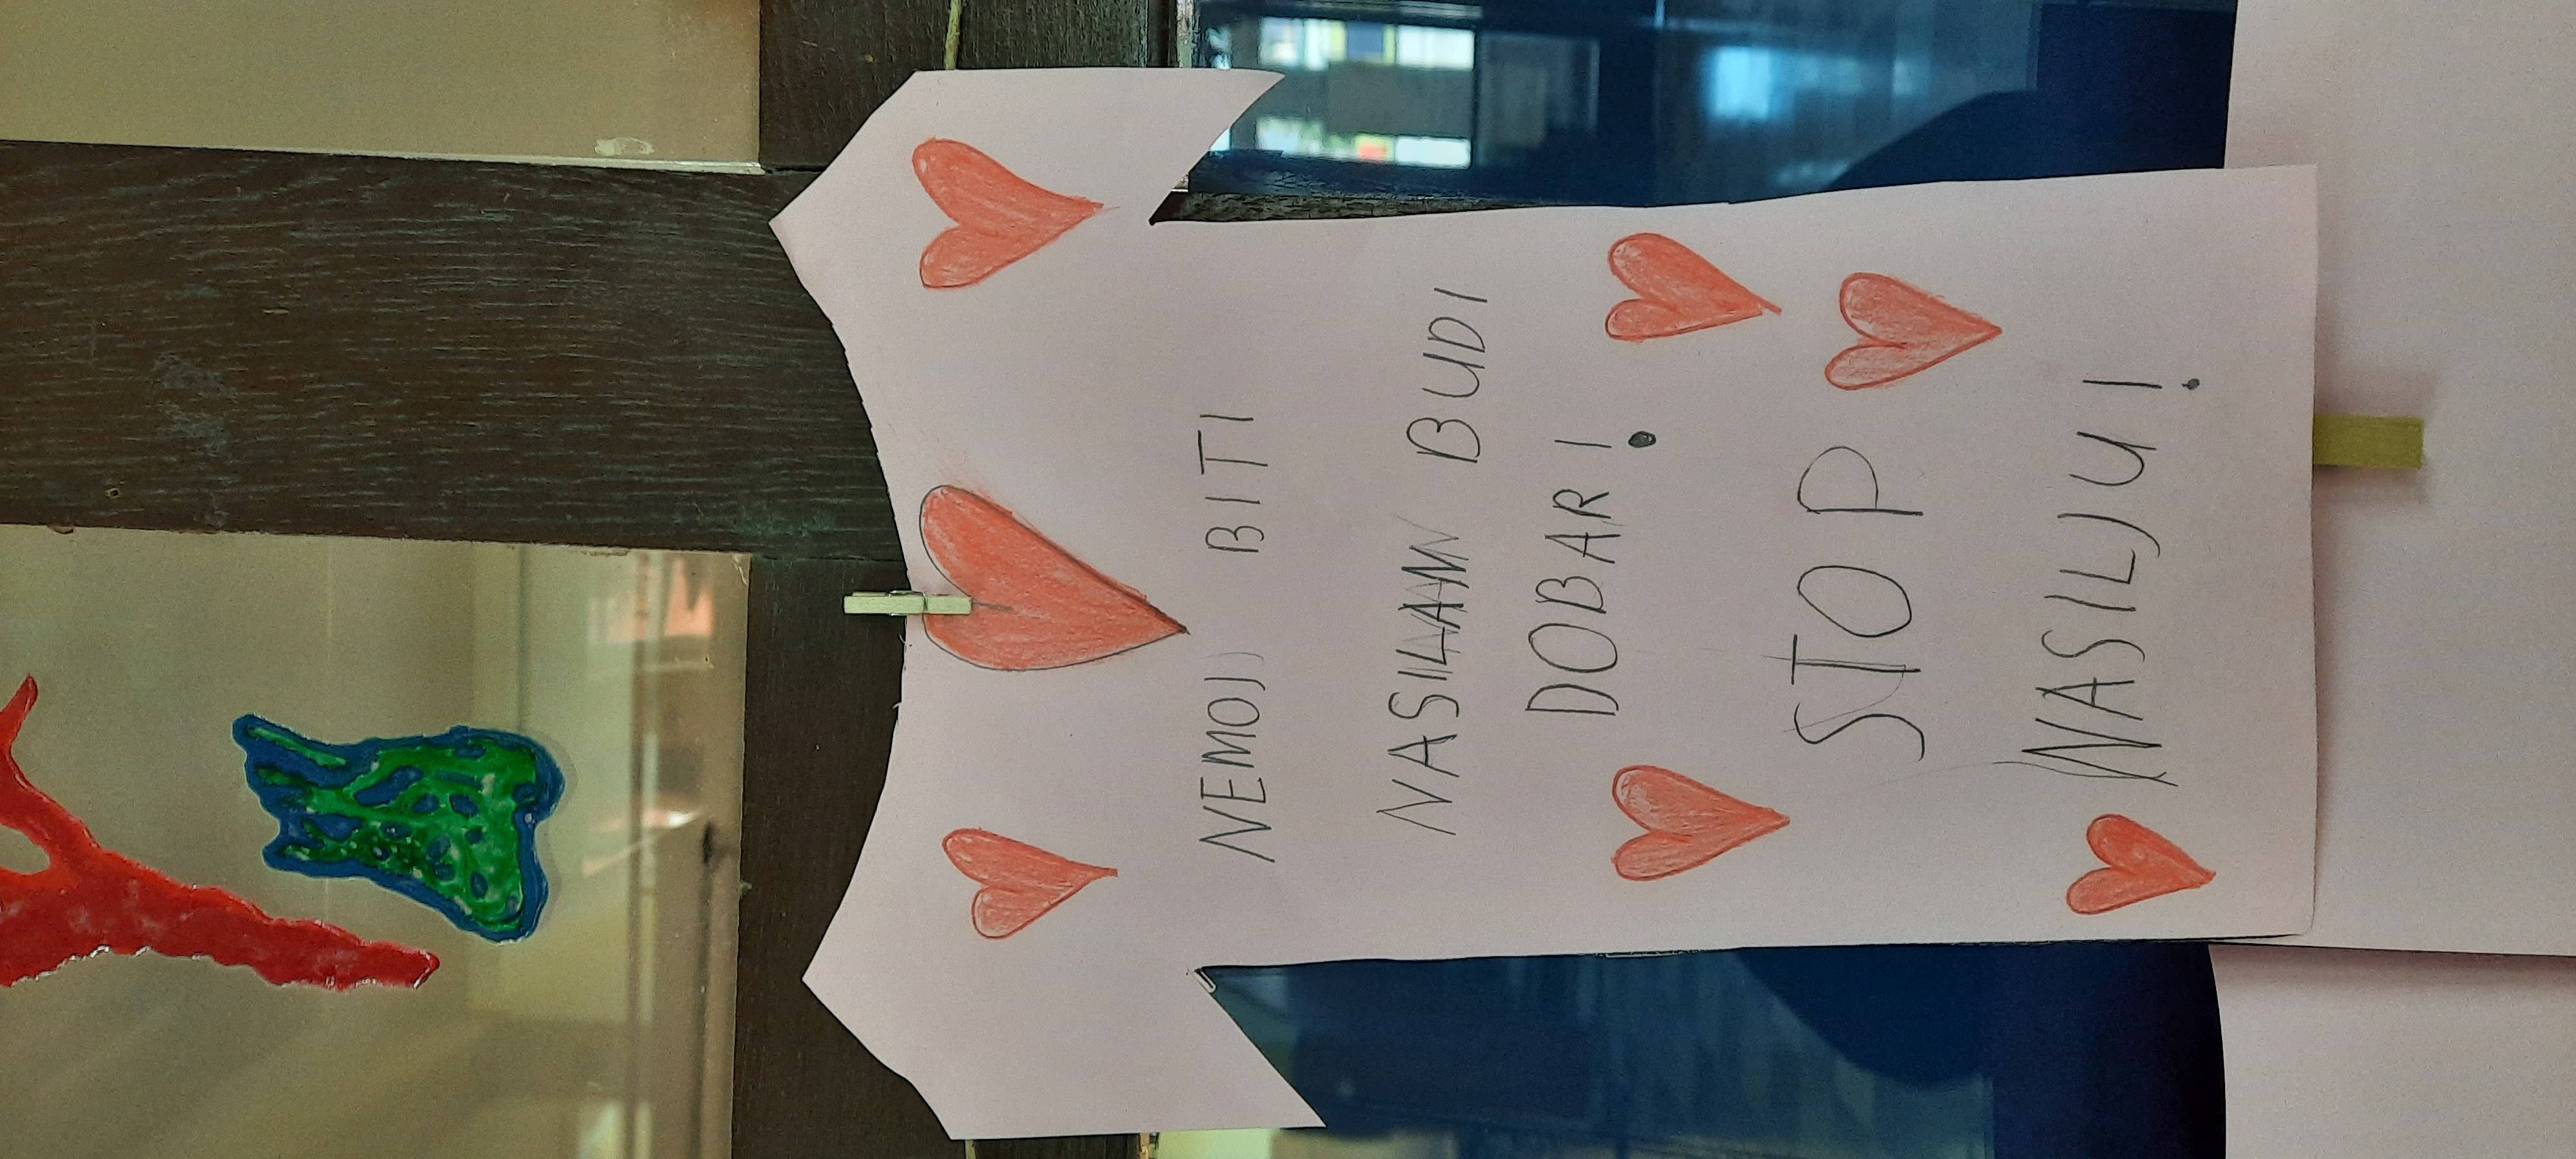 NEMOJ BITI
NASILAN BUDI
DOBAR!
STOP
NASILJU!